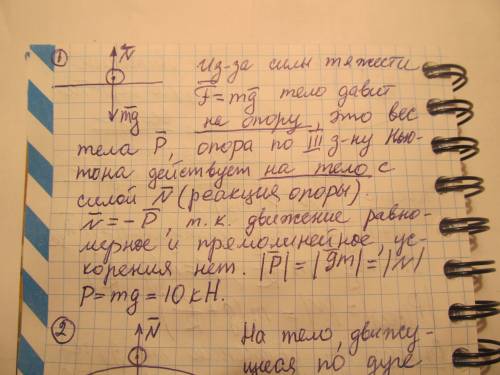 1
N̄
Из-за силы тяжести
F̄=mḡ тело давит
mḡ
на опору, это вес
тела P̄, опора по III з-ну Нью-
тона действует на тело с
силой N̄ (реакция опоры).
N̄=-P̄, т.к. движение равно-
мерное и прямолинейное, ус-
корения нет. |P̄|=|ḡm|=|N̄|
P=mg=10кН.
2
N̄
На тело, движу-
щееся по дуге